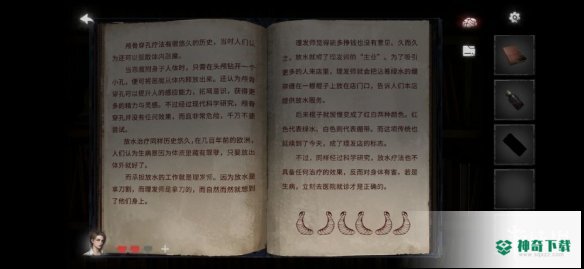 颅骨穿孔疗法有很悠久的历史，当时人们认
为还可以驱散体内恶魔。
当恶魔附身于人体时，只需在头颅钻开一个
小孔，便可将恶魔从体内释放出来。还认为颅骨
穿孔可以提升人的感应能力，拓宽意识，获得更
多的精力与灵感。不过经过现代科学研究，颅骨
穿孔并没有任何效果，而且非常危险，千万不能
尝试。
放水治疗同样历史悠久，在几百年前的欧洲，
人们认为生病原因为体液里藏有罪孽，只要放出
体外就好了。
而承担放水的工作就是理发师。因为放水是
拿刀割，而理发师是拿刀的，而自然而然就想到
了他们身上。
理发师觉得能多挣钱也没有意见。久而久
之，放水就成了理发师的“主业”。为了吸引
更多的人来店里，理发师就会把沾着绿水的绷
带缠在一根棍子上放在店门口，告诉人们本店
提供放水服务。
后来棍子就慢慢变成了红白两种颜色。红
色代表绿水，白色则代表绷带。而这项传统也
延续到了今天，成了理发店的标志。
不过，同样经过科学研究，放水疗法也不
具备任何治疗的效果，反而对身体有害，若是
生病，立刻去医院就诊才是正确的。
神奇下载